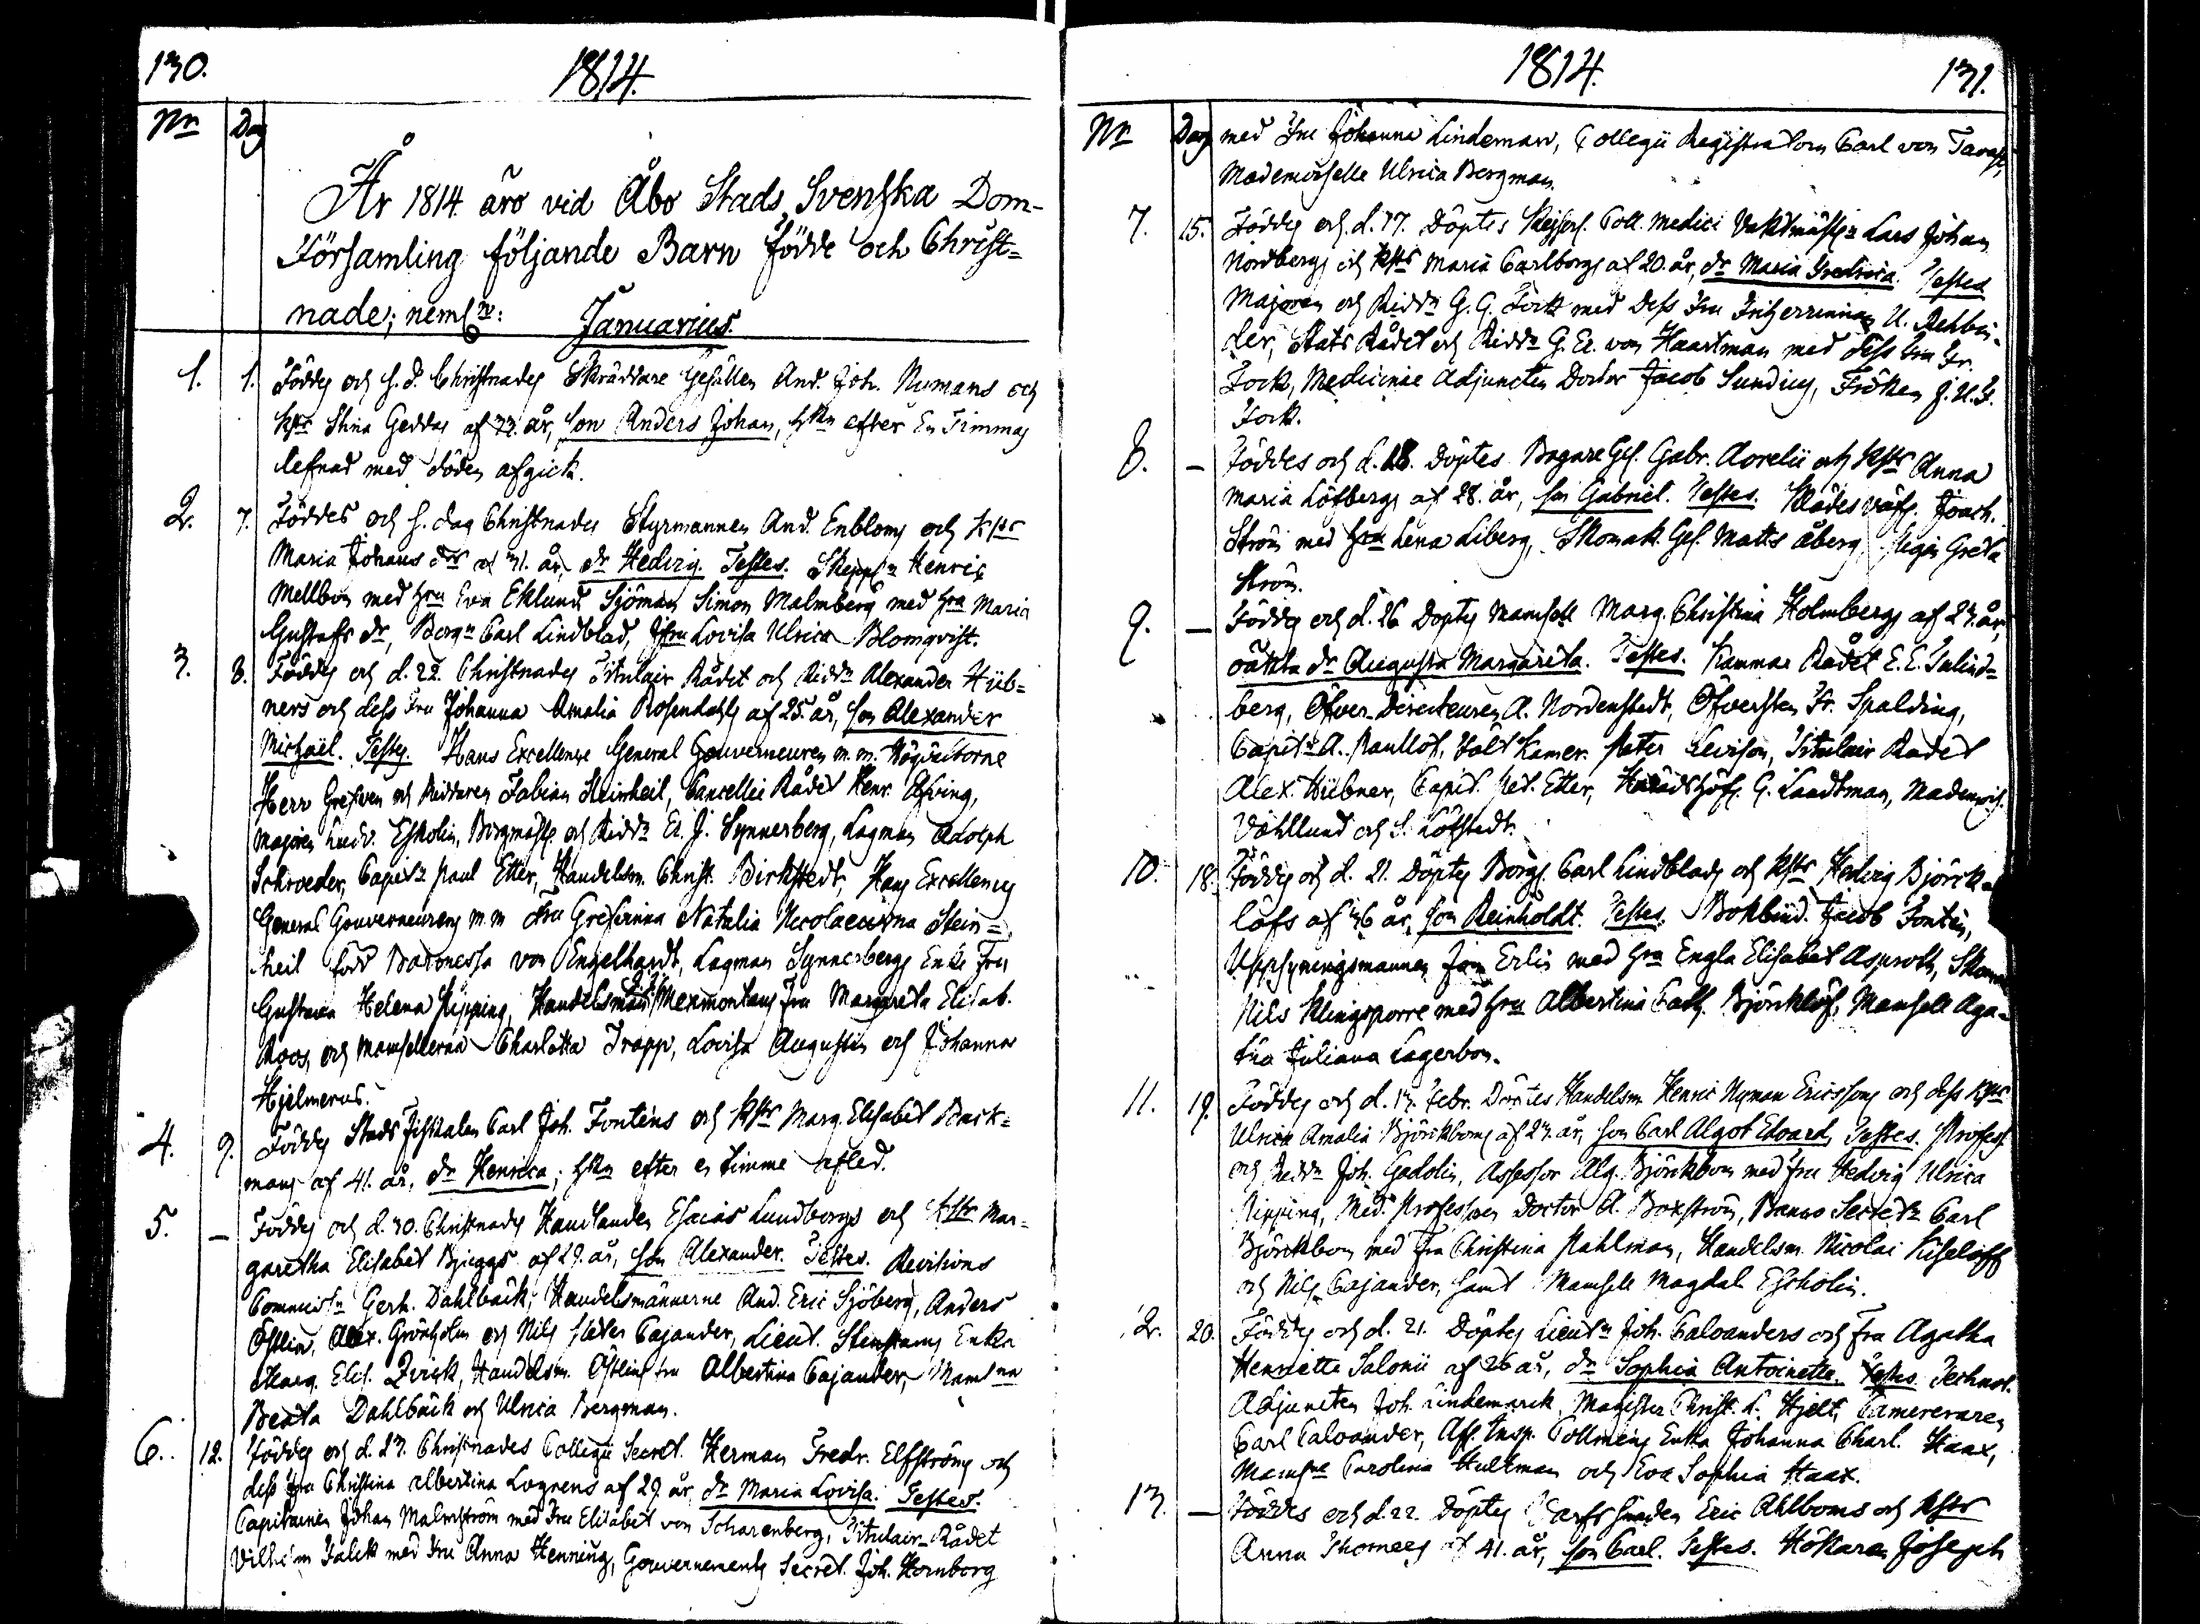 130.
1814.
Nr Dag
År 1814 äro vid Åbo Stads Svenska Dom-
Församling följande Barn födde och Christ=
nade; neml:
Januarius.
1. 1. Föddes och s. d. Christnades Skräddare Gesällen And. Joh. Numans och
hstr Stina Geddas af 33. år, son Anders Johan, hkn efter En Timmas
lefnad med döden afgick.
2. 7. Föddes och s. dag Christnades Styrmannen And. Enbloms och hstr
Maria Johans dr af 31. år, dr Hedvig. Testes. Skepp Henric
Mellbom med hru Eva Eklund Sjöman Simon Malmberg med hru Maria
Gustafs dr, Borg Carl Lindblad, Jfru Lovisa Ulrica Blomqvist.
3. 8. Föddes och d. 22. Christnades Titulair Rådet och Ridd Alexander Hüb=
ners och dess Fru Johanna Amalia Rosendahls af 25. år, son Alexander
Michaël. Testes. Hans Excellence General Gouverneuren m. m. Högvälborne
Herr Grefven och Riddaren Fabian Steinheil, Cancellie Rådet Henr.
Majoren Ludv. Eskolin, Borgmäst. och Ridd Er. J. Synnerberg, Lagman Adolph
Schroeder, Capit Paul Etter, Handelsm. Christ. Birkstedt, Hans Excellences
General Gouverneurens m. m. Fru Grefvinna Natalia Nicolaewna Stein=
heil född Baronessa von Engelhardt, Lagman Synnerbergs Enke Fru
Gustava Helena Pipping, Handelsman Mexmontans Fru Margareta Elisab.
Roos, och Mamsellerna Charlotta Trapp, Lovisa Augustin och Johanna
Hjelmerus.
4. 9. Föddes Stads Fiskalen Carl Joh. Fonténs och hstr Marg. Elisabet Back=
mans af 41. år, dr Henrica; hkn efter en timme afled.
5. — Föddes och d. 30. Christnades Handlanden Esaias Lundborgs och hstr Mar=
garetha Elisabet Bjuggs af 29. år, son Alexander. Testes. Revisions
Commiss Gerh. Dahlbäck, Handelsmännerne And. Eric Sjöberg, Anders
Östlin, Alex. Grönholm och Nils Peter Cajander, Lieut. Enka
Marg. Elis. Handelsm. Östlins fru Albertina Cajander, Maml
Beata Dahlbäck och Ulrica Bergman.
6. 12. Föddes och d. 23. Christnades Collegii Secret. Herman Fredr. Elfströms och
dess Fru Christina Albertina Lagrens af 29. år, dr Maria Lovisa. Testes.
Capitainen Johan Malmström med Fru Elisabet von Scharenberg, Titulair-Rådet
Vilhelm Falck med Fru Anna Henning, Gouvernements Secret. Joh. Hornborg
1814.
131.
Nr Dag
med Fru Johanna Lindeman, Collegii Registratorn Carl von
Mademoiselle Ulrica Bergman.
7. 15. Föddes och d. 17. Döptes Kejserl. Coll. Medici Vaktmäst Lars Johan
Nordbergs och hstr Maria Carlborgs af 20. år, dr Maria Fredrica. Testes
Majoren och Ridd G. G. Fock med Dess Fru Friherrinnan U. Rehbin-
der, Stats Rådet och Ridd G. Er. von Haartman med dess Fru Fr.
Fock, Medicinæ Adjuncten Doctor Jacob Sundius, Fröken J. U. F.
Fock.
8. — Föddes och d. 18. Döptes Bagare Ges. Gabr. Aorelii och hstr Anna
Maria Löfbergs af 28. år, son Gabriel. Testes. Klädesväfv. Joach.
Ström med hru Lena Liberg, Skomak. Ges. Matts Åberg, Pigan Greta
Ström.
9. — Föddes och d. 26 Döptes Mamsell Marg. Christina Holmbergs af 23. år,
oäkta dr Augusta Margareta. Testes. Kammar Rådet E. E.
berg, Öfver-Directeuren A. Nordenstedt, Öfversten Fr. Spalding,
Capit A. Volt Kamer. Peter Levison, Titulair Rådet
Alex. Hübner, Capit. Ped. Etter, Häradshöf. G. Landtman, Mademois.
Vahllund och S. Löfstedt.
10. 18. Föddes och d. 21. Döptes Borg. Carl Lindblads och hstr Hedvig Björck=
löfs af 36 år, son Reinholdt. Testes. Bokbind. Jacob Fontén,
Uppsyningsmannen Erlin med hru Engla Elisabet Asproth,
Nils Klingsporre med hru Albertina Cath. Björklöf, Mamsell Aga=
tha Juliana Lagerbom.
11. 19. Föddes och d. 13. Febr. Döptes Handelsm. Henric Nyman Ericssons och dess hstr
Ulrica Amalia Björkboms af 23. år, son Carl Algot Edvard, Testes. Profess.
och Ridd Joh. Gadolin, Assessor Alg. Björkbom med Fru Hedvig Ulrica
Pipping, Med. Professoren Doctor A. Boxström, Banco Secret Carl
Björckbom med Fru Christina Pahlman, Handelsm. Nicolai Kiseleff
och Nils Cajander, samt Mamsell Magdal. Escholin.
12. 20. Föddes och d. 21. Döptes Lieutn Joh. Caloanders och Fru Agatha
Henrietta Salonii af 26 år, dr Sophia Antoinette. Testes. Technol.
Adjuncten Joh. Lindemarck, Magister Christ. L. Hjelt, Camereraren
Carl Caloander, Ass. Insp. Collmens Enka Johanna Charl. Haax,
Mams Carolina Hultman och Eva Sophia Haax.
13. — Föddes och d. 22. Döptes Eric Ahlboms och hstr
Anna Thomæs af 41. år, son Carl. Testes. Hökaren Joseph